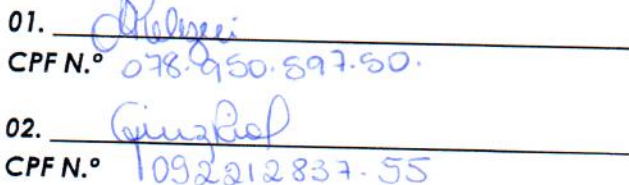 01.
CPF N.º 078.950.597.50.
02.
CPF N.º 092212837-55